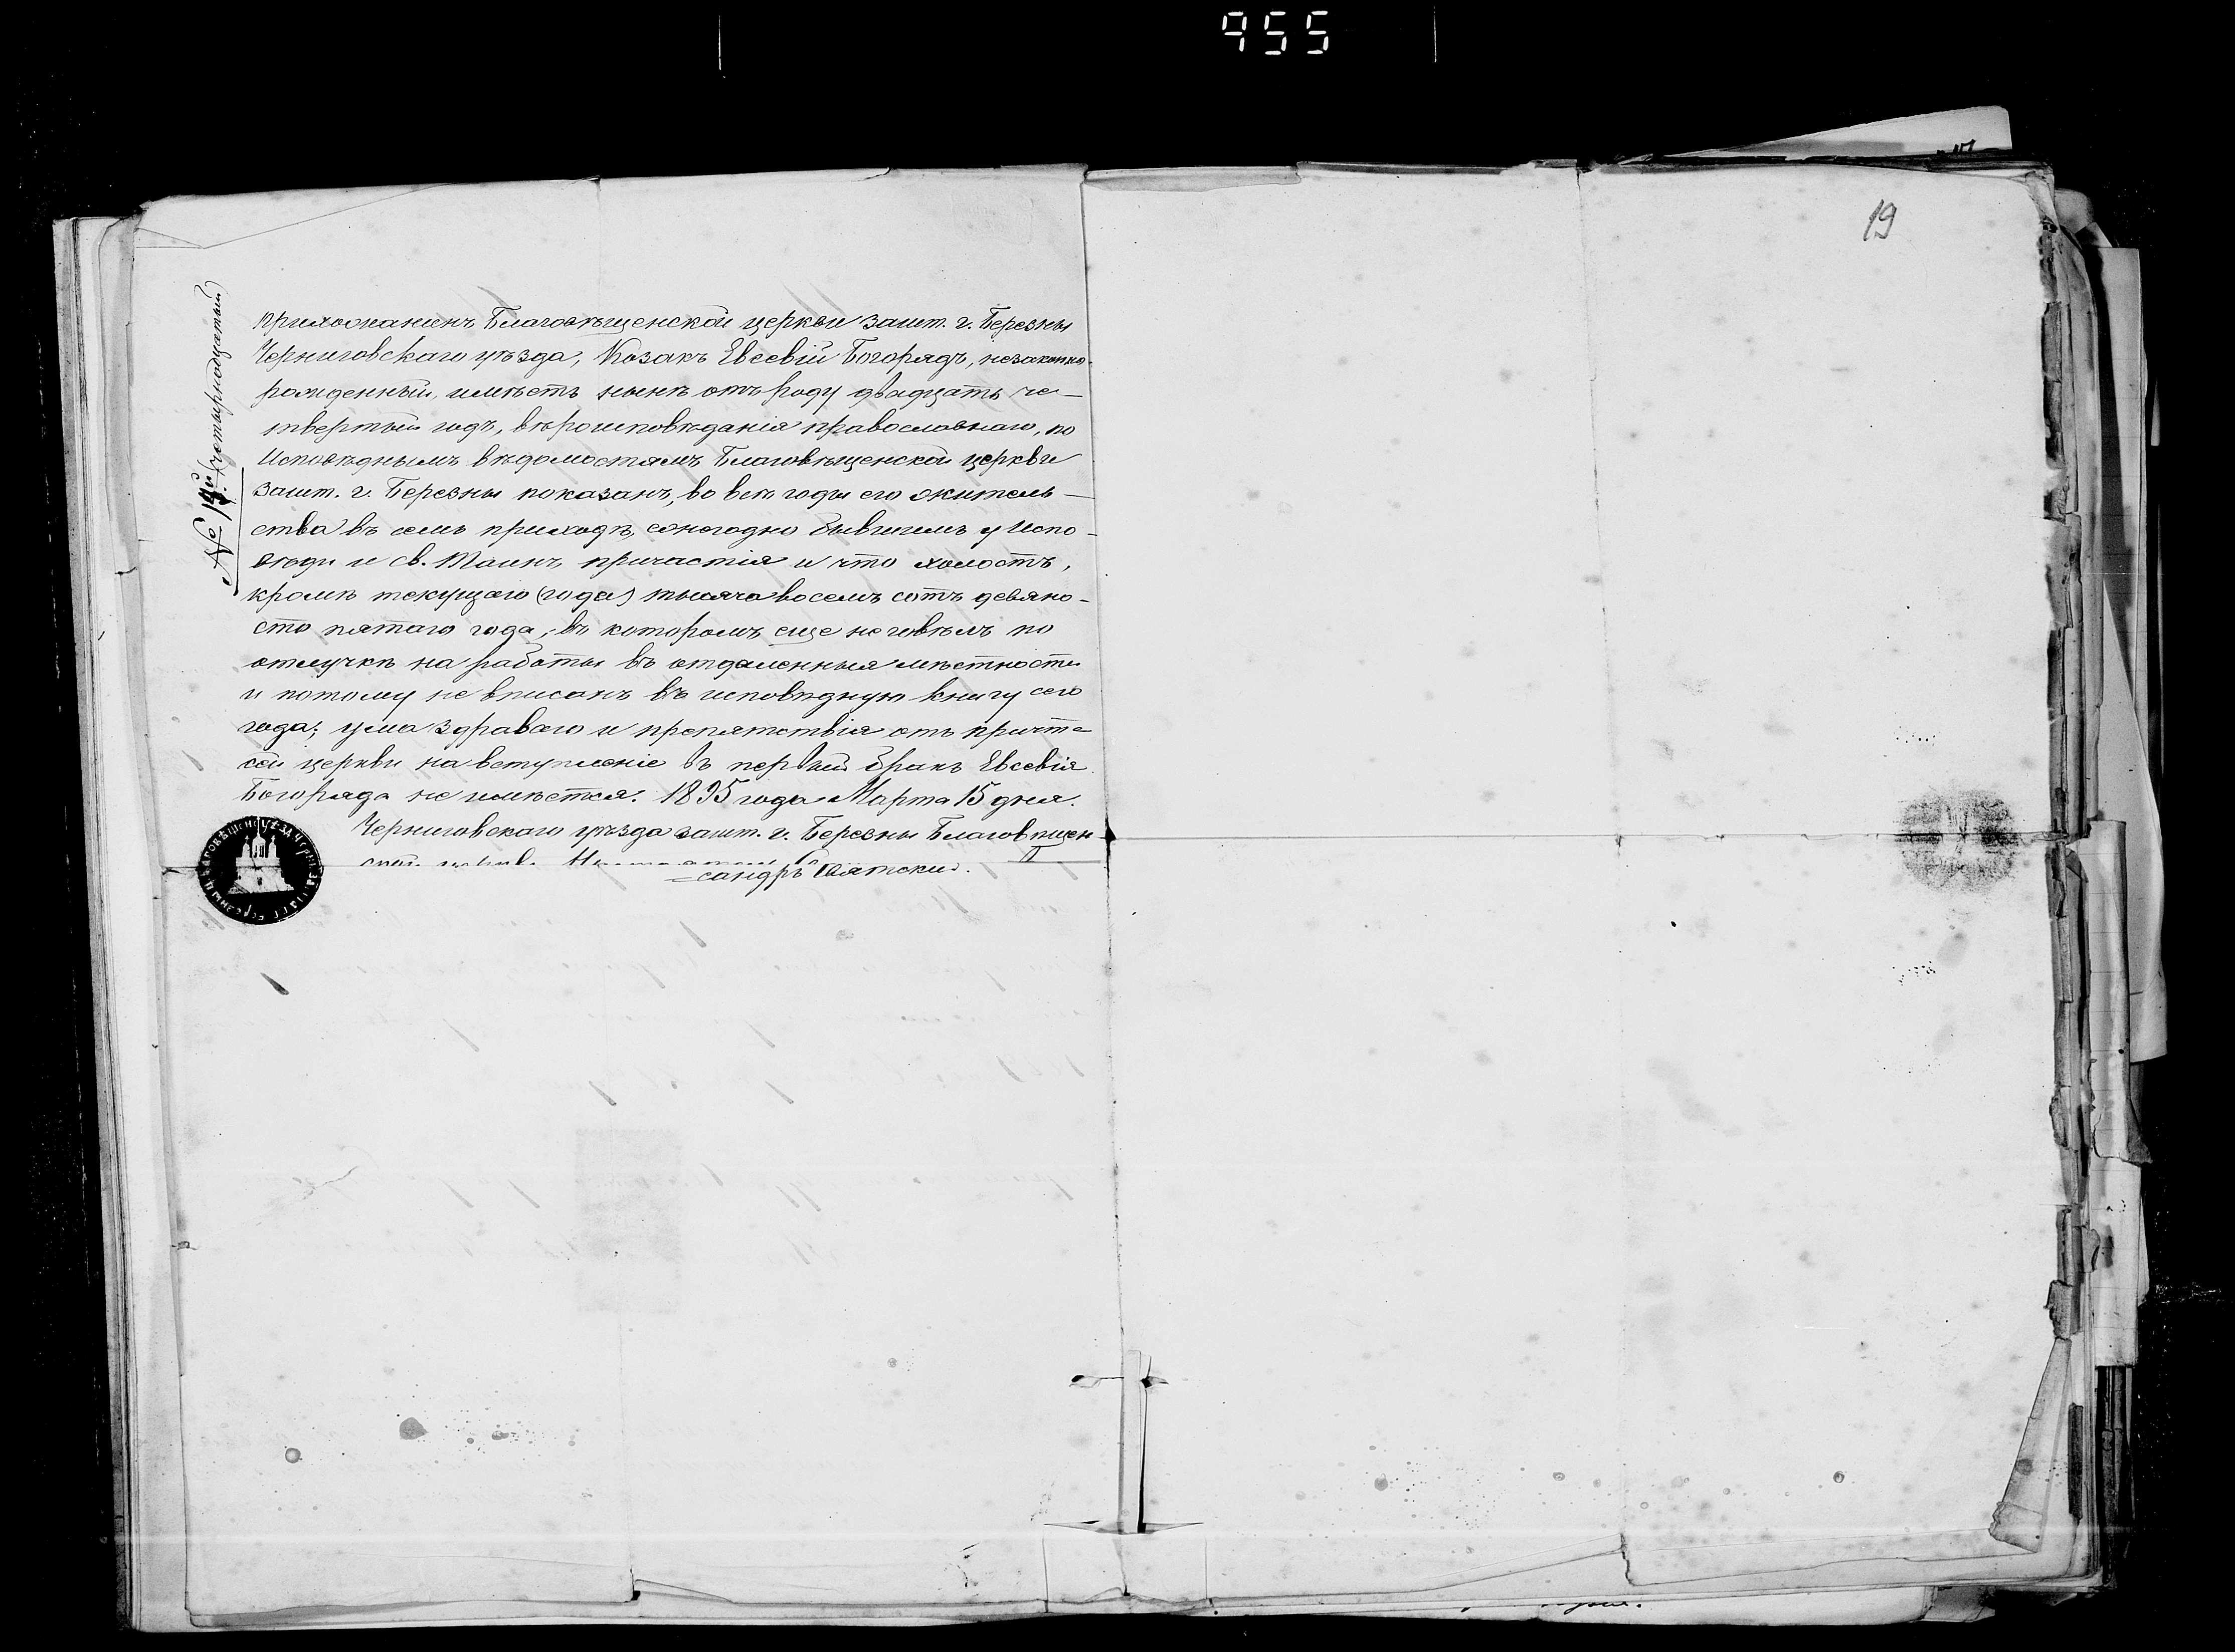 455
19
№ 14й (четырнадцатый)
прихожанинъ Благовѣщенской церкви зашт. г. Березны
Черниговскаго уѣзда, Козакъ Евсевій Богорядъ, незаконно-
рожденный, имѣетъ нынѣ отъ роду двадцать че-
твертый годъ, вѣроисповѣданія православнаго, по
Исповѣднымъ вѣдомостямъ Благовѣщенской церкви
зашт. г. Березны показанъ, во всѣ годы его житель-
ства въ семъ приходѣ, ежегодно бывшимъ у Испо-
вѣди и св. Таинъ причастія и что холостъ,
кромѣ текущаго (года) тысяча восемъ сотъ девяно-
сто пятаго года, въ которомъ еще не говѣлъ по
отлучкѣ на работы въ отдаленныя мѣстности
и потому не вписанъ въ исповѣдную книгу сего
года; ума здраваго и препятствія отъ причта
сей церкви на вступленіе въ первый бракъ Евсевія
Богоряда не имѣется. 1895 года Марта 15 дня.
Черниговскаго уѣзда зашт. г. Березны Благовѣщен-